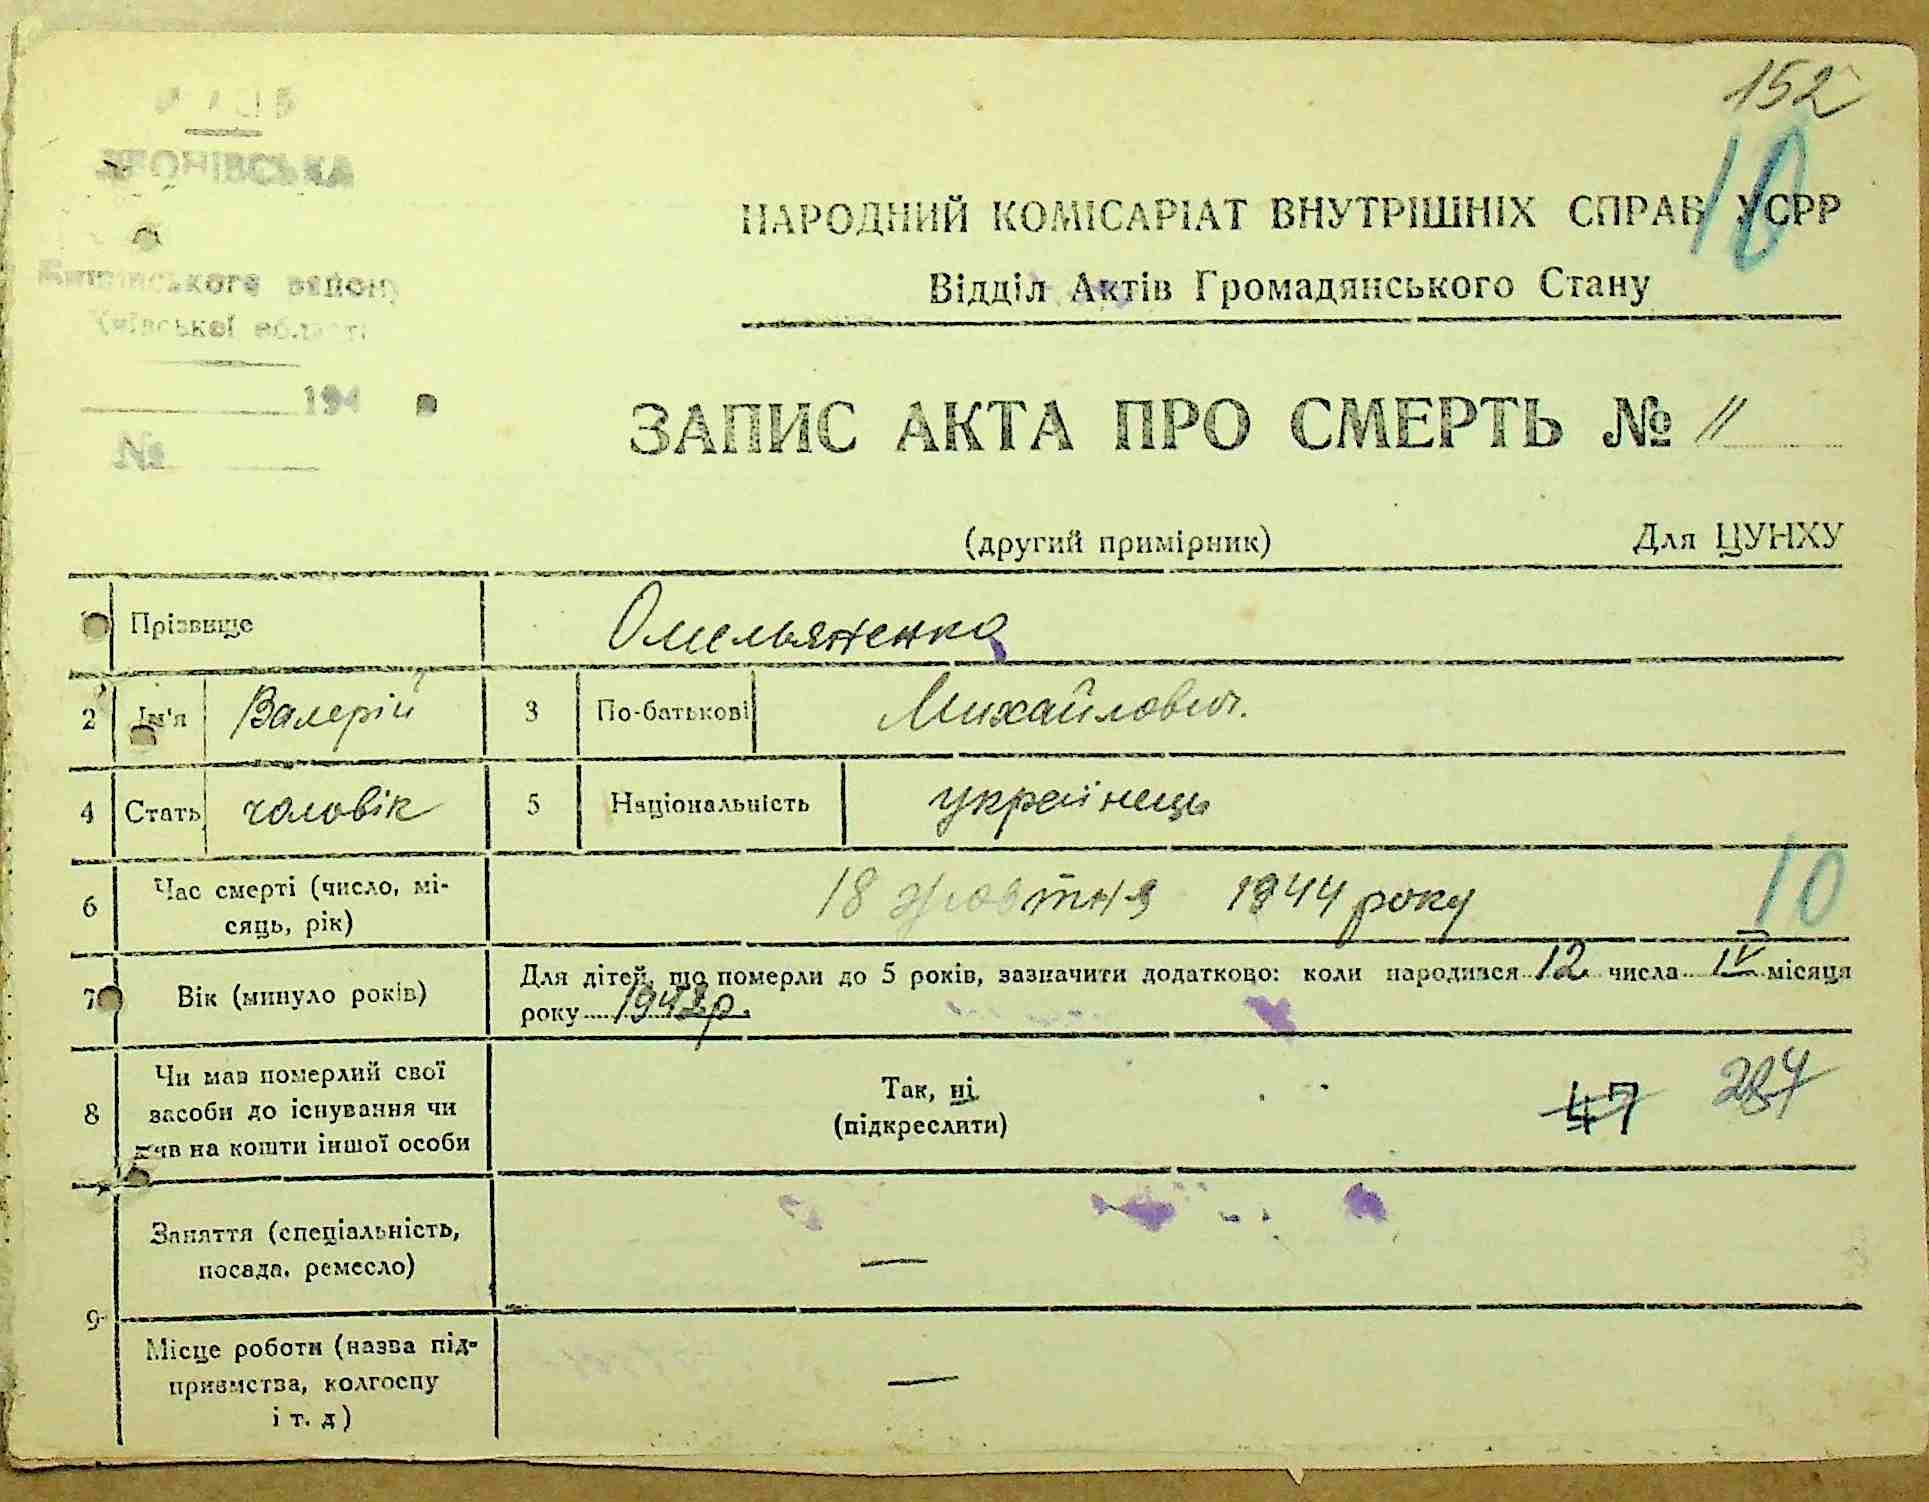 152
10
НАРОДНИЙ КОМІСАРІАТ ВНУТРІШНІХ СПРАВ УСРР
Відділ Актів Громадянського Стану
району
області
194
№
ЗАПИС АКТА ПРО СМЕРТЬ № 11
(другий примірник) Для ЦУНХУ
Прізвище Омельяненко
2 Ім'я Валерій 3 По-батькові Михайлович.
4 Стать чоловік 5 Національність українець
6 Час смерті (число, мі-
сяць, рік) 18 жовтня 1944 року 10
7 Вік (минуло років) Для дітей, що померли до 5 років, зазначити додатково: коли народився 12 числа IV місяця
року 1942 р.
8 Чи мав померлий свої
засоби до існування чи
жив на кошти іншої особи Так, ні
(підкреслити) 47 284
9 Заняття (спеціальність,
посада, ремесло) —
Місце роботи (назва під-
приємства, колгоспу
і т. д) —